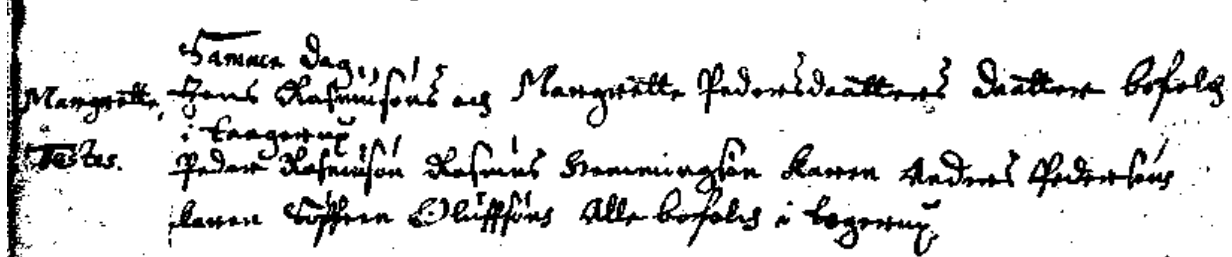 Samme Dag,
Margrette, Jens Rasmusøns och Margrette Pedersdaatters daatter befoelt
i taagerup
Testes. Peder Rasmusøn Rasmus Hemmingsøn Karen Anders Pedersøns
Karen Søffren Oluffsøns Alle befoelt i togerup,